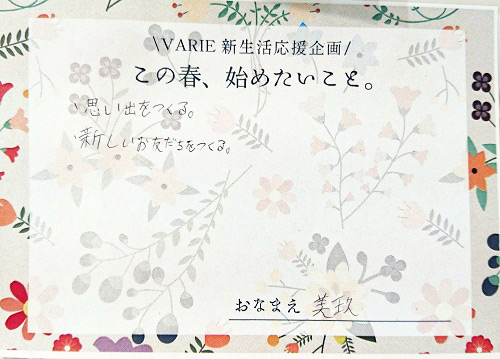 \VARIE 新生活応援企画/
この春、始めたいこと。
・思い出をつくる。
・新しいお友だちをつくる。
おなまえ 美玖